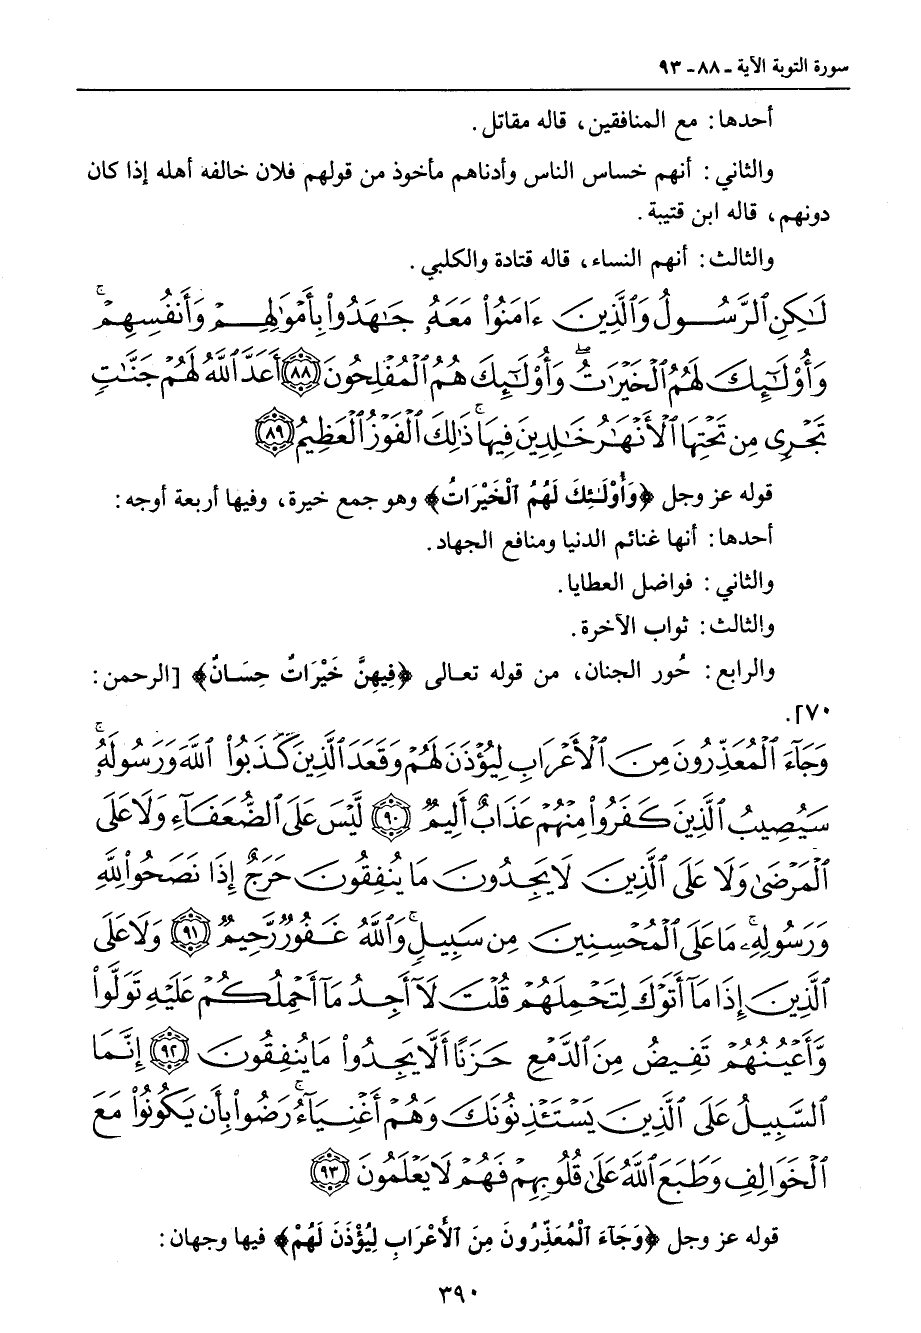 سورة التوبة الآية ـ ٨٨ـ ٩٣
أحدها: مع المنافقين، قاله مقاتل.
والثاني: أنهم خساس الناس وأدناهم مأخوذ من قولهم فلان خالفه أهله إذا كان
دونهم، قاله ابن قتيبة.
والثالث: أنهم النساء، قاله قتادة والكلبي.
لَٰكِنِ ٱلرَّسُولُ وَٱلَّذِينَ ءَامَنُوا۟ مَعَهُۥ جَٰهَدُوا۟ بِأَمْوَٰلِهِمْ وَأَنفُسِهِمْ ۚ
وَأُو۟لَٰٓئِكَ لَهُمُ ٱلْخَيْرَٰتُ ۖ وَأُو۟لَٰٓئِكَ هُمُ ٱلْمُفْلِحُونَ ٨٨ أَعَدَّ ٱللَّهُ لَهُمْ جَنَّٰتٍ
تَجْرِى مِن تَحْتِهَا ٱلْأَنْهَٰرُ خَٰلِدِينَ فِيهَا ۚ ذَٰلِكَ ٱلْفَوْزُ ٱلْعَظِيمُ ٨٩
قوله عز وجل ﴿وَأُوْلَـٰئِكَ لَهُمُ ٱلْخَيْرَاتُ﴾ وهو جمع خيرة، وفيها أربعة أوجه:
أحدها: أنها غنائم الدنيا ومنافع الجهاد.
والثاني: فواضل العطايا.
والثالث: ثواب الآخرة.
والرابع: حُور الجنان، من قوله تعالى ﴿فِيهِنَّ خَيْرَاتٌ حِسَانٌ﴾ [الرحمن:
٢٧٠.
وَجَآءَ ٱلْمُعَذِّرُونَ مِنَ ٱلْأَعْرَابِ لِيُؤْذَنَ لَهُمْ وَقَعَدَ ٱلَّذِينَ كَذَبُوا۟ ٱللَّهَ وَرَسُولَهُۥ ۚ
سَيُصِيبُ ٱلَّذِينَ كَفَرُوا۟ مِنْهُمْ عَذَابٌ أَلِيمٌ ٩٠ لَّيْسَ عَلَى ٱلضُّعَفَآءِ وَلَا عَلَى
ٱلْمَرْضَىٰ وَلَا عَلَى ٱلَّذِينَ لَا يَجِدُونَ مَا يُنفِقُونَ حَرَجٌ إِذَا نَصَحُوا۟ لِلَّهِ
وَرَسُولِهِۦ ۚ مَا عَلَى ٱلْمُحْسِنِينَ مِن سَبِيلٍ ۚ وَٱللَّهُ غَفُورٌ رَّحِيمٌ ٩١ وَلَا عَلَى
ٱلَّذِينَ إِذَا مَآ أَتَوْكَ لِتَحْمِلَهُمْ قُلْتَ لَآ أَجِدُ مَآ أَحْمِلُكُمْ عَلَيْهِ تَوَلَّوا۟
وَّأَعْيُنُهُمْ تَفِيضُ مِنَ ٱلدَّمْعِ حَزَنًا أَلَّا يَجِدُوا۟ مَا يُنفِقُونَ ٩٢ إِنَّمَا
ٱلسَّبِيلُ عَلَى ٱلَّذِينَ يَسْتَـْٔذِنُونَكَ وَهُمْ أَغْنِيَآءُ ۚ رَضُوا۟ بِأَن يَكُونُوا۟ مَعَ
ٱلْخَوَالِفِ وَطَبَعَ ٱللَّهُ عَلَىٰ قُلُوبِهِمْ فَهُمْ لَا يَعْلَمُونَ ٩٣
قوله عز وجل ﴿وَجَآءَ ٱلْمُعَذِّرُونَ مِنَ ٱلأَعْرَابِ لِيُؤْذَنَ لَهُمْ﴾ فيها وجهان:
٣٩٠